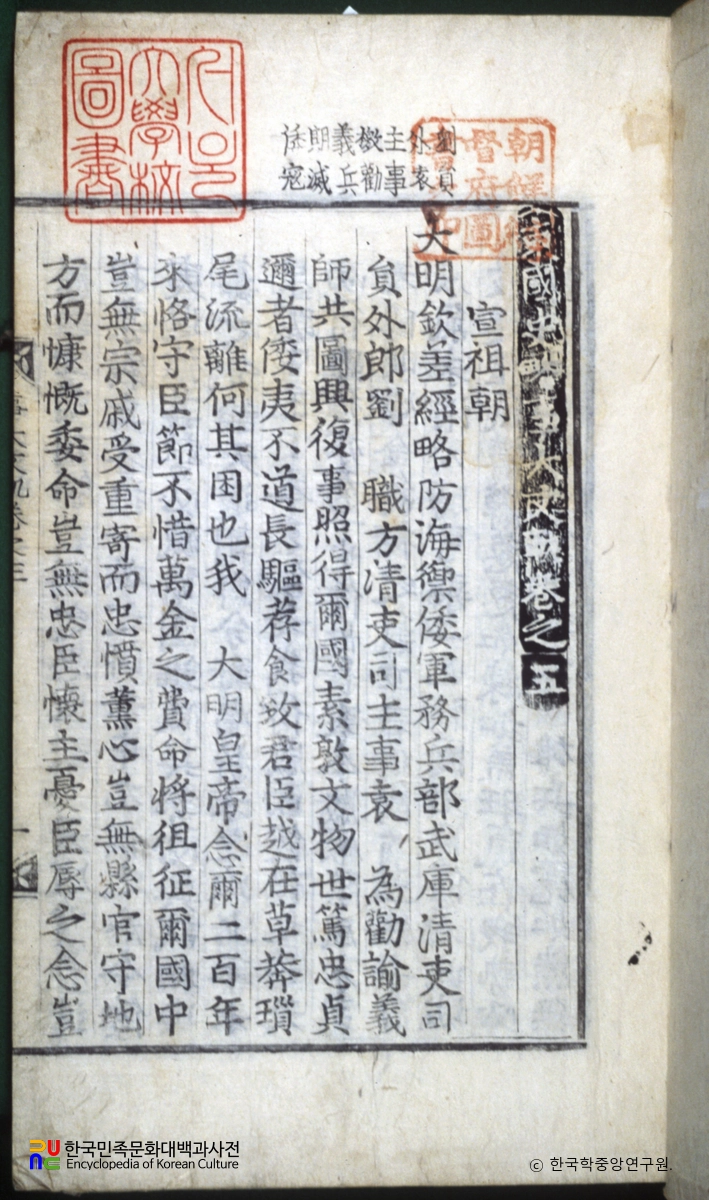 東國史略事大文軌卷之五
宣祖朝
大明欽差經略防海禦倭軍務兵部武庫清吏司
員外郎劉 職方清吏司主事袁 為勸諭義
師共圖興復事照得爾國素敦文物世篤忠貞
邇者倭夷不道長驅荐食致君臣越在草莽瑣
尾流離何其困也我 大明皇帝念爾二百年
來恪守臣節不惜萬金之費命將徂征爾國中
豈無宗戚受重寄而忠憤薰心豈無縣官守地
方而慷慨委命豈無忠臣懷主憂臣辱之念豈
劉員
外袁
主事
檄勸
義兵
期滅
倭寇
朝鮮總
督府圖
書之印
서울
大學校
圖書
한국민족문화대백과사전
Encyclopedia of Korean Culture
© 한국학중앙연구원.